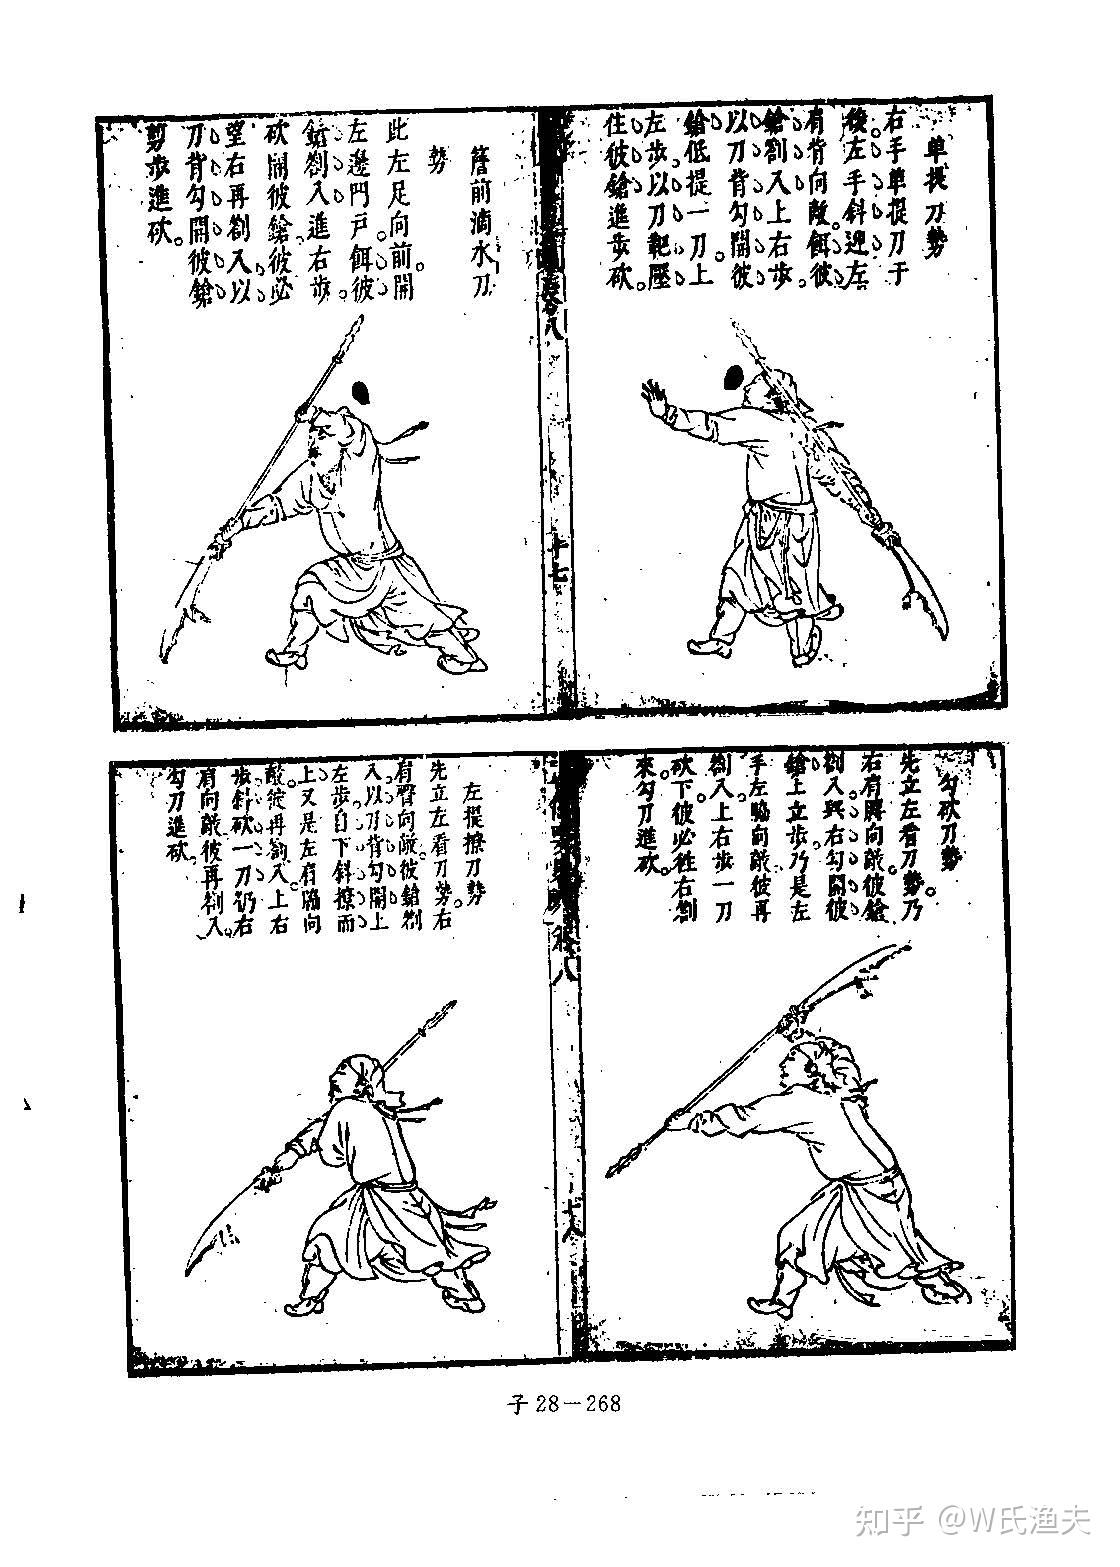 單提刀勢
右手單提刀于
後左手斜迎左
肩背向敵餌彼
鎗劄入上右步
以刀背勾開彼
鎗低提一刀上
左步以刀靶壓
住彼鎗進步砍
簷前滴水刀
勢
此左足向前開
左邊門戶餌彼
鎗劄入進右步
砍開彼鎗彼必
望右再劄入以
刀背勾開彼鎗
剪步進砍
卷八
十七
勾砍刀勢
先立左看刀勢乃
右肩膊向敵彼鎗
劄入與右勾開彼
鎗上立步乃是左
手左脇向敵彼再
劄入上右步一刀
砍下彼必往右劄
來勾刀進砍
左提撩刀勢
先立左看刀勢右
肩臂向敵彼鎗劄
入以刀背勾開上
左步自下斜撩而
上又是左肩脇向
敵彼再劄入上右
步斜砍一刀仍右
肩向敵彼再劄入
勾刀進砍
卷八
十八
子28－268
知乎 @W氏渔夫